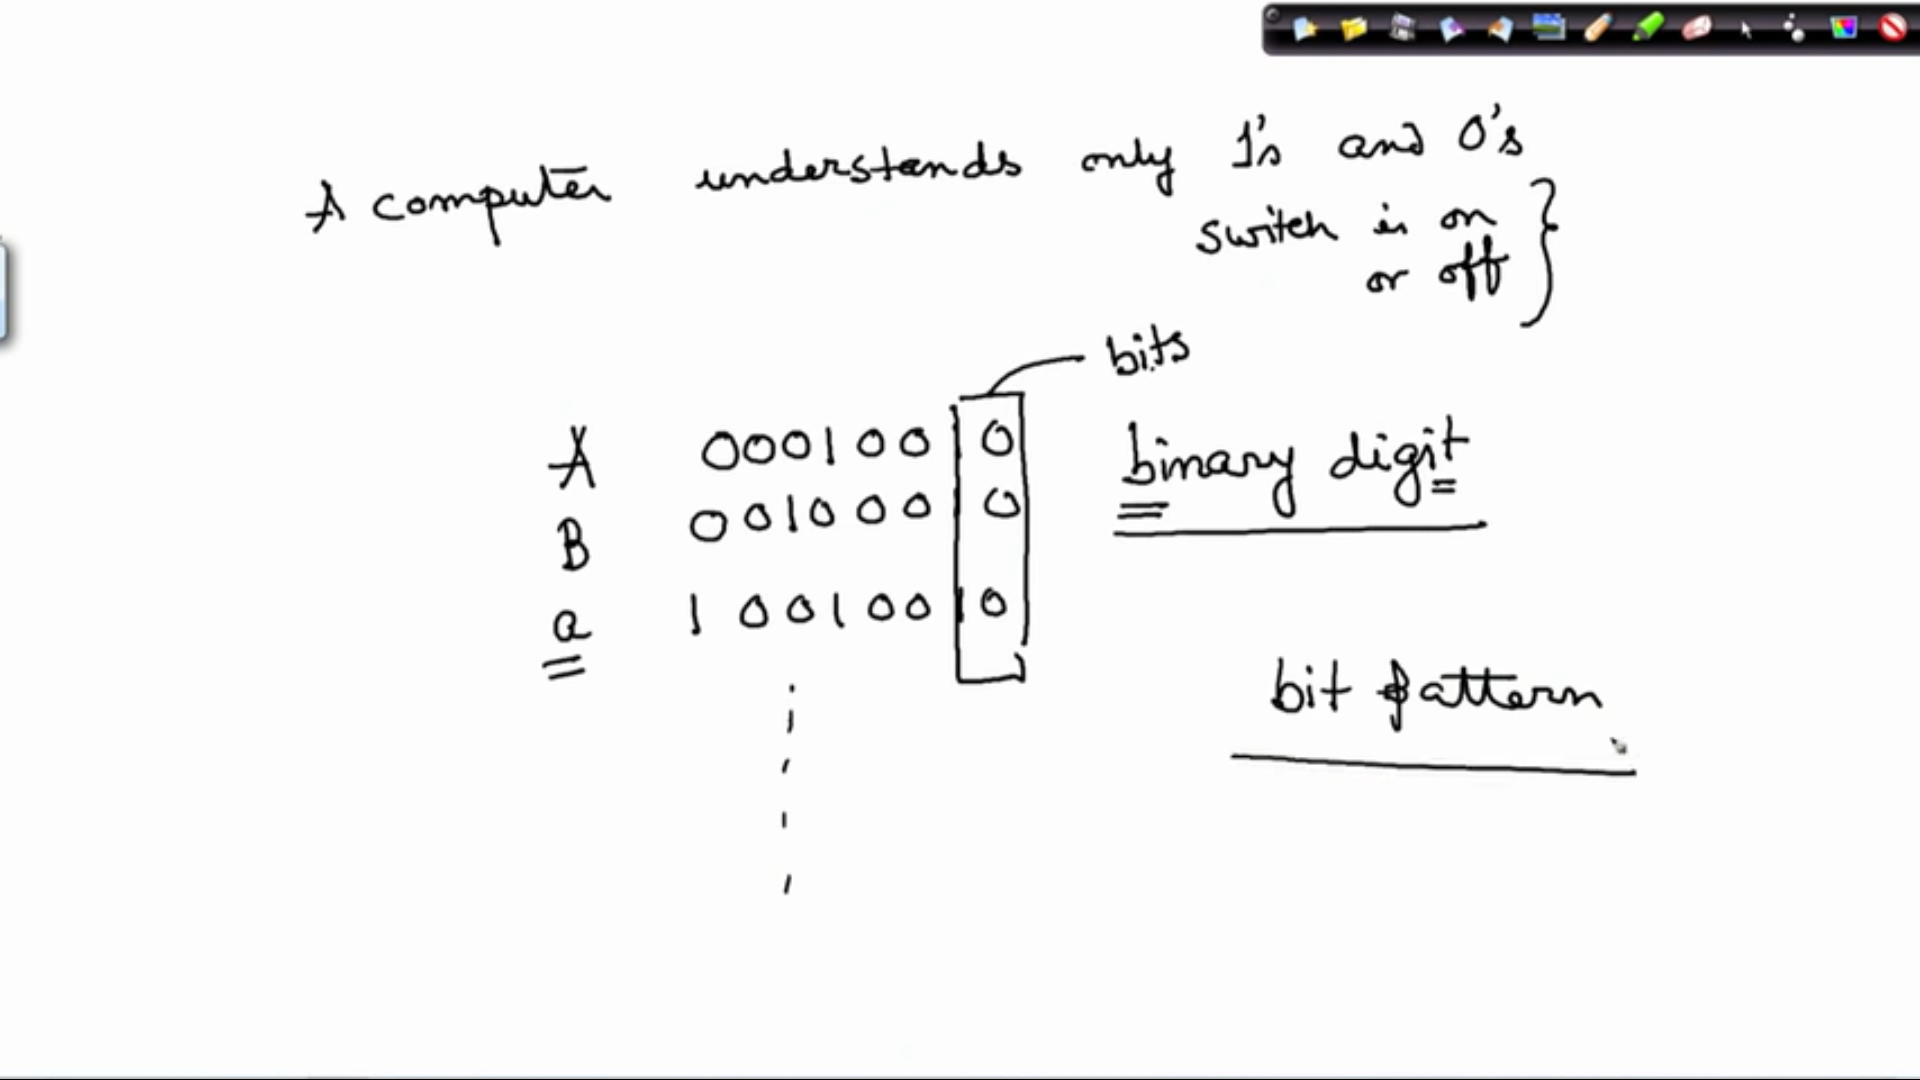 A computer understands only 1's and 0's
switch is on
or off
bits
A 00010010
B 00100010
binary digit
a 10010010
bit pattern